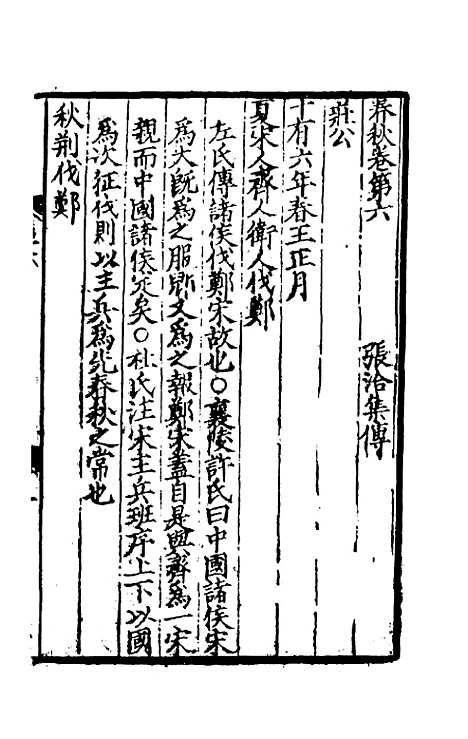 春秋卷第六 張洽集傳
莊公
十有六年春王正月
夏宋人齊人衛人伐鄭
左氏傳諸侯伐鄭宋故也○襄陵許氏曰中國諸侯宋
為大既為之服郳又為之報鄭宋蓋自是與齊為一宋
親而中國諸侯定矣○杜氏注宋主兵班序上下以國
為次征伐則以主兵為先春秋之常也
秋荆伐鄭